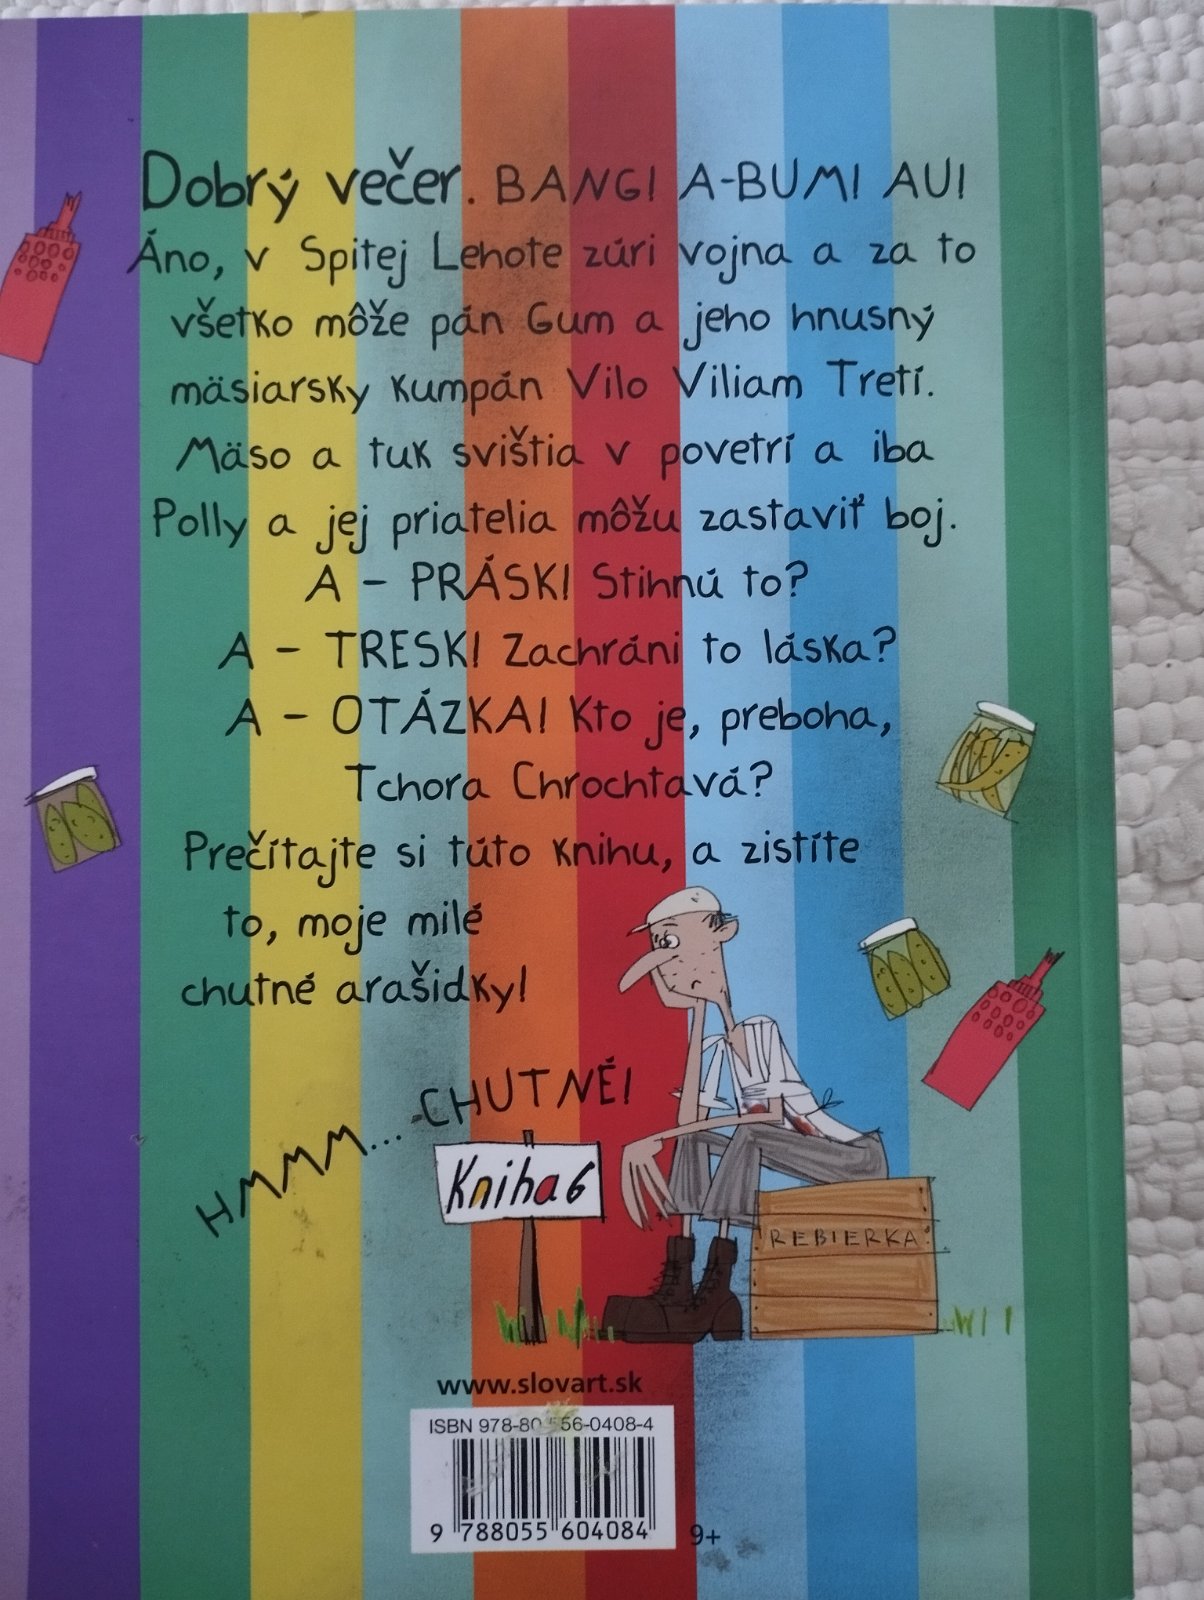 Dobrý večer. BANG! A-BUM! AU!
Áno, v Spitej Lehote zúri vojna a za to
všetko môže pán Gum a jeho hnusný
mäsiarsky kumpán Vilo Viliam Tretí.
Mäso a tuk svištia v povetrí a iba
Polly a jej priatelia môžu zastaviť boj.
A - PRÁSK! Stihnú to?
A - TRESK! Zachráni to láska?
A - OTÁZKA! Kto je, preboha,
Tchora Chrochtavá?
Prečítajte si túto knihu, a zistíte
to, moje milé
chutné arašidky!
HMMM... CHUTNÉ!
Kniha 6
REBIERKA
www.slovart.sk
ISBN 978-80-556-0408-4
9 788055 604084
9+